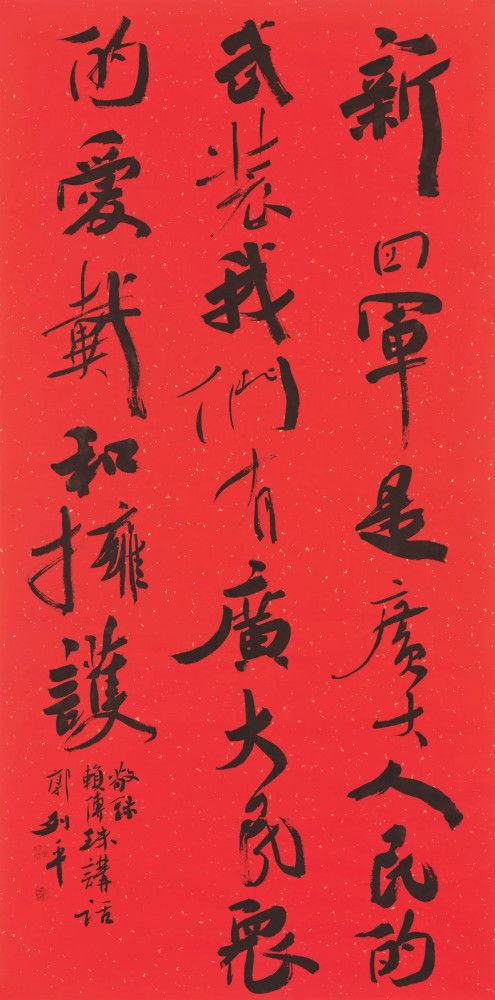 新四軍是廣大人民的
武裝我們有廣大民眾
的愛戴和擁護
敬録
賴傳珠講話
郭利平